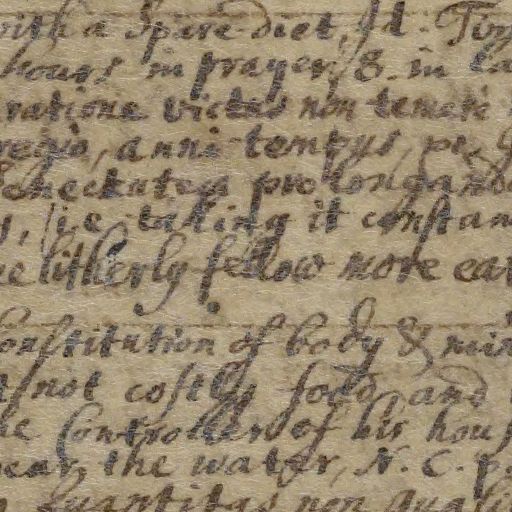 with a spare diet, St. Tim
hours in prayer, 8. in
ratione victus non temere
regio, anni tempus,
senectutem prolongand
i.e taking it constan
litherly fellow more ear
Constitution of body & min
not costly food and
he Controller of his hous
near the water, N. C. p.
quantitas non quali